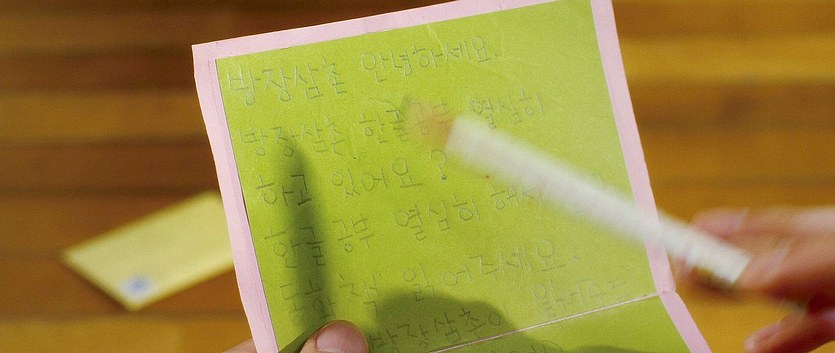 방장삼촌 안녕하세요.
방장삼촌, 한글공부 열심히
하고 있어요?
한글 공부 열심히 해서
동화책 읽어주세요.
방장삼촌이 읽어주는